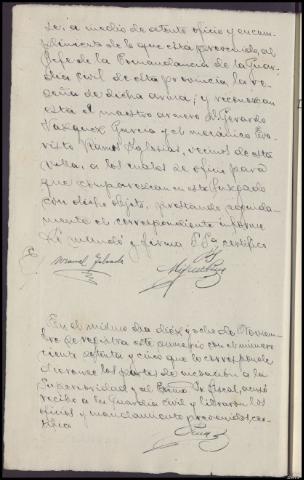 se, a medio de atento oficio y en cum-
plimiento de lo que está prevenido, al
Jefe de la Comandancia de la Guar-
dia Civil de esta provincia, la re-
seña de dicha arma; y reconozcan
esta el maestro armero D. Gerardo
Vazquez Garcia y el mecánico Eva-
risto Ramos Iglesias, vecinos de esta
villa, a los cuales se oficie para
que comparezcan en este Juzgado
con dicho objeto, prestando seguida-
mente el correspondiente informe.
Lo mandó y firma S.Sª certifico
Manuel
En el mismo dia diez y ocho de Noviem-
bre se registra este sumario con el número
ciento setenta y cinco que le corresponde,
dieronse los partes de incoación a la
Superioridad y al Excmo Sr Fiscal, acusó
recibo a la Guardia Civil y libraron los
oficios y mandamiento prevenidos, cer-
tifico